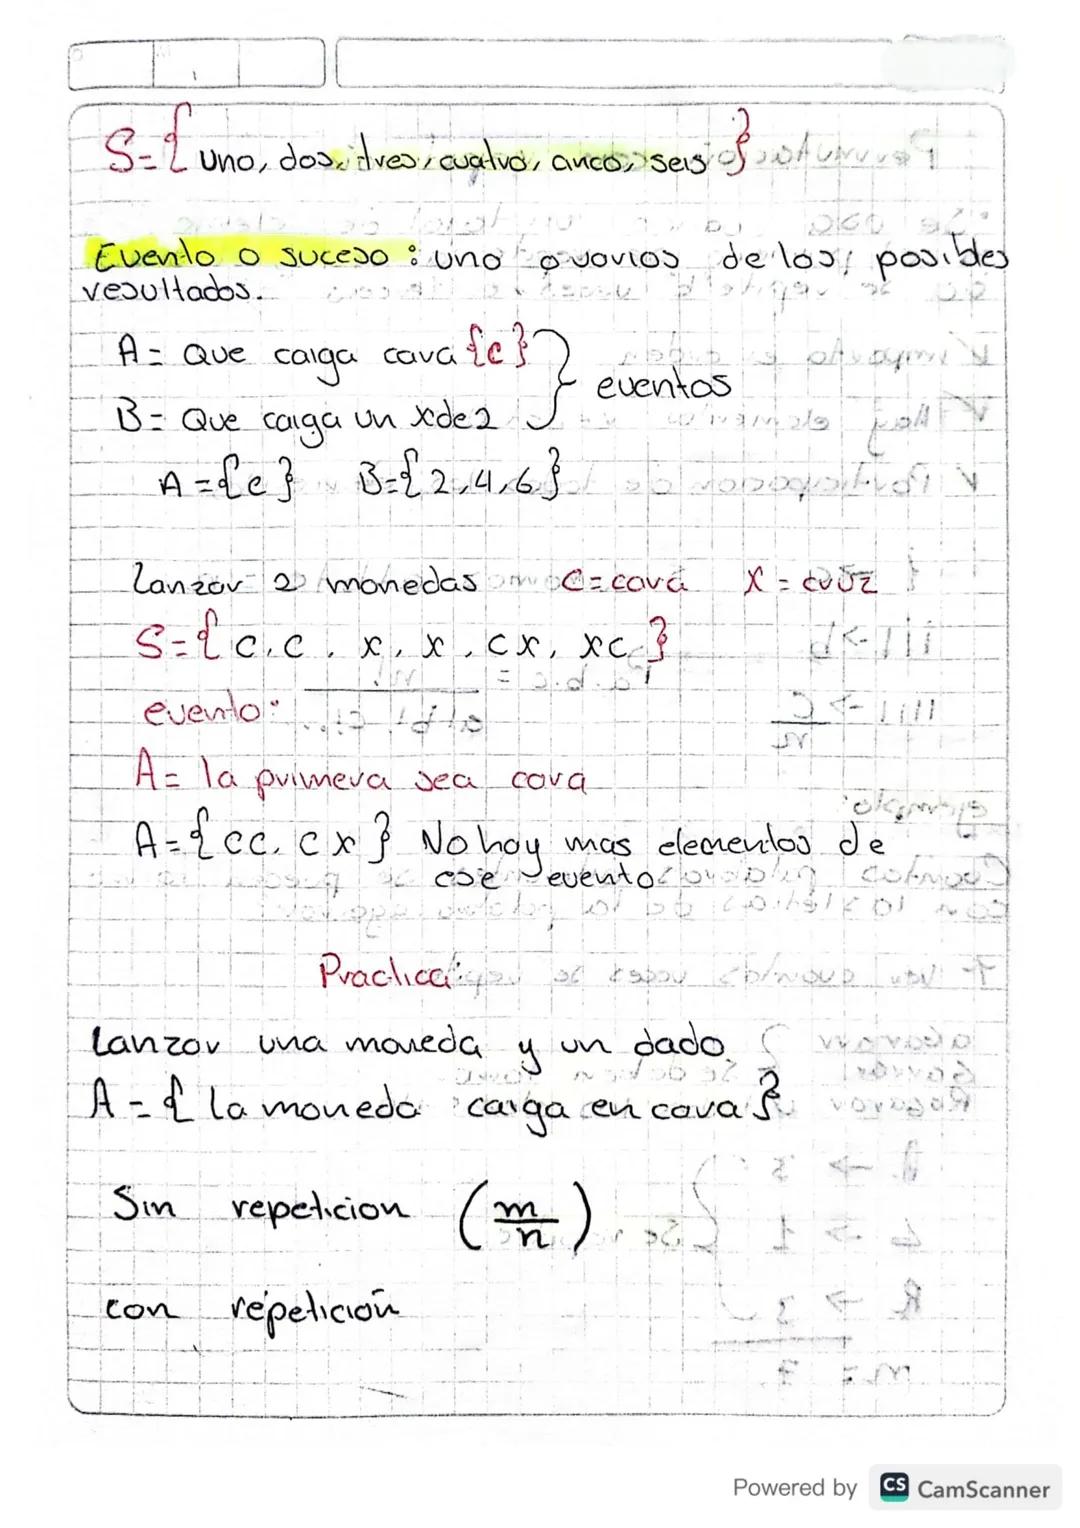 S={ uno, dos, tres, cuatro, cinco, seis }
Evento o suceso : uno o varios de los posibles
resultados.
A= Que caiga cara {c}
B= Que caiga un xde2
eventos
A={c} B={2,4,6}
Lanzar 2 monedas C=cara X=cruz
S={ c,c, x, x, cx, xc }
evento:
A= la primera sea cara
A={cc, cx} No hay mas elementos de
ese evento
Practica:
Lanzar una moneda y un dado.
A={ la moneda caiga en cara }
Sin repeticion (m/n)
con repetición
Powered by CS CamScanner